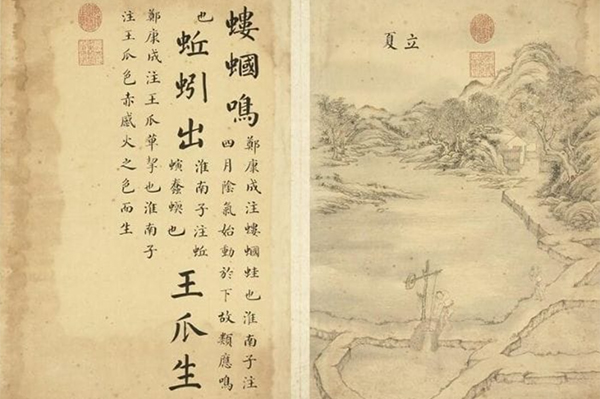 立夏
螻蟈鳴
鄭康成注螻蟈蛙也淮南子注
四月陰氣始動於下故類應鳴
也
蚯蚓出
淮南子注蚯
螾蠢蝡也
王瓜生
鄭康成注王瓜草挈也淮南子
注王瓜色赤感火之色而生